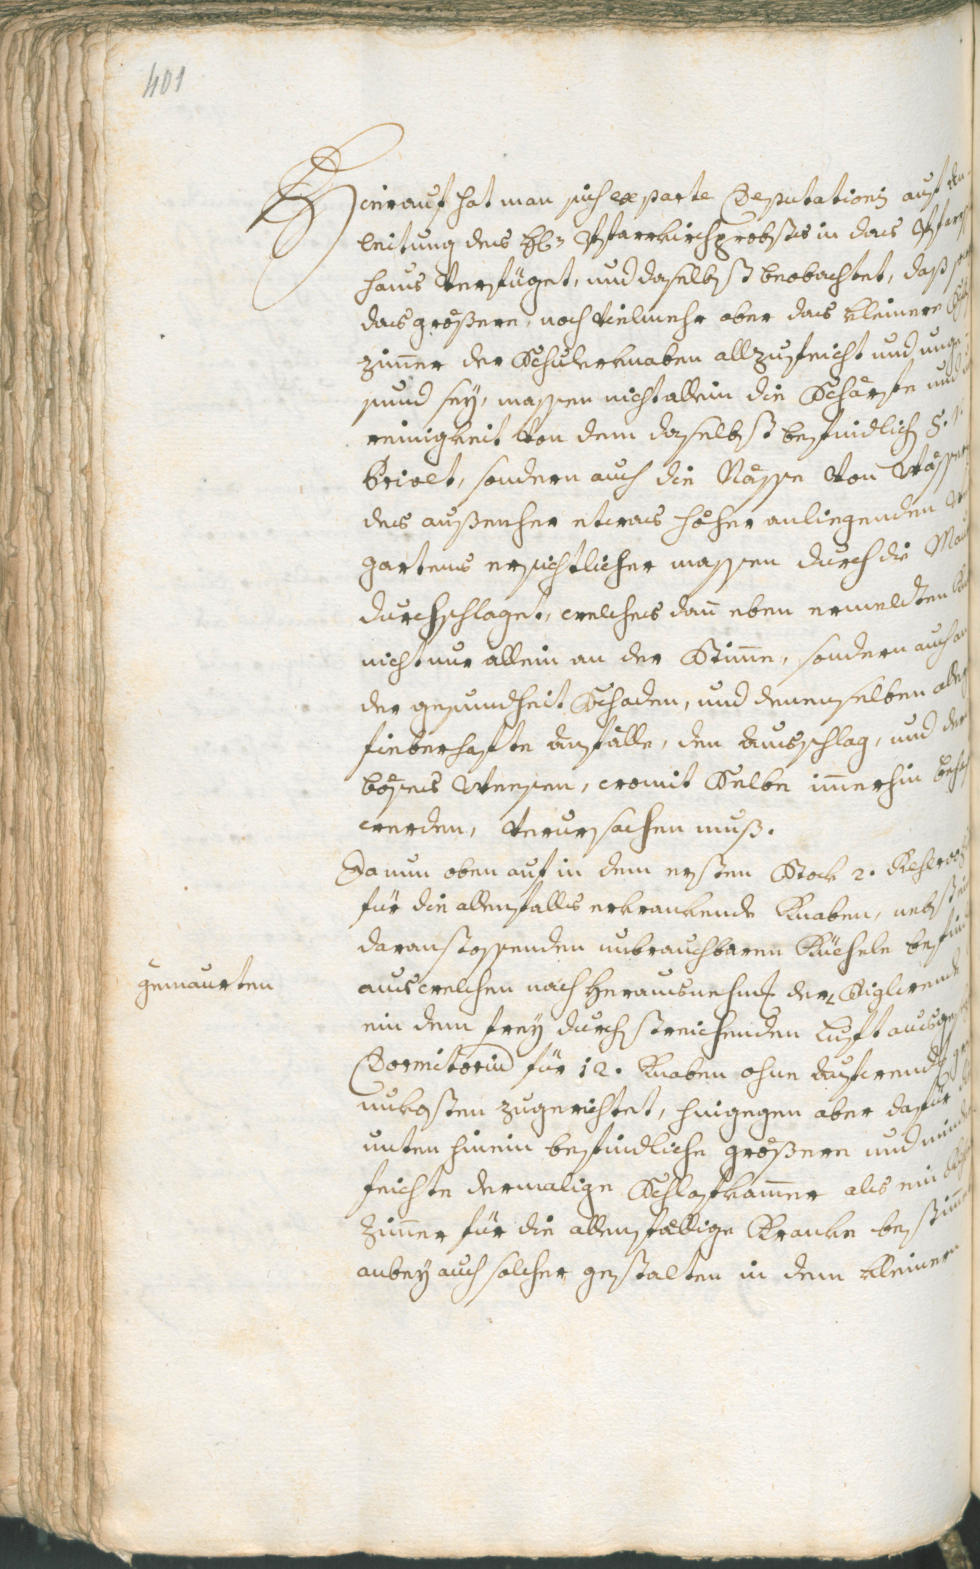 401
Hierauf hat man sich ex parte Deputationis auf an-
leitung des H: Pfarrkirchprobstes in das Pfarr
haus verfüget, und daselbst beobachtet, daß
das größere, noch vielmehr aber das kleinere
zimer der Schulerknaben allzufeicht und unge
sund sey, massen nicht allein die Schärfe und
reinigkeit von dem daselbst befindlich S: V:
Privet, sondern auch die Nässe von Wasser
des außenher etwas höher anliegenden
gartens ersichtlicher massen durch die Mau
durchschlaget, welches dañ eben ermeldten
nicht nur allein an der Stime, sondern auch an
der gesundheit Schaden, und denenselben aller
fieberhafte anfälle, den ausschlag, und der
böses Weesen, womit Selbe imerhin behaft
werden, verursachen muß.
Da nun oben auf in dem ersten Stock 2.
für die allenfalls erkrankende Knaben, nebst
daranstossenden unbrauchbaren Kücheln befind
gemaurten
aus welchen nach Herausnehmung der Riglwende
ein dem frey durchstreichenden Luft ausge
Dormitorium für 12. Knaben ohne aufwendung
unkosten zugerichtet, hingegen aber dafür
unten hinein befindliche größere und minder
feichte dermalige Schlafkamer als ein
Zimer für die allenfällige Kranke bestimt
anbey auch solcher gestalten in dem kleinern